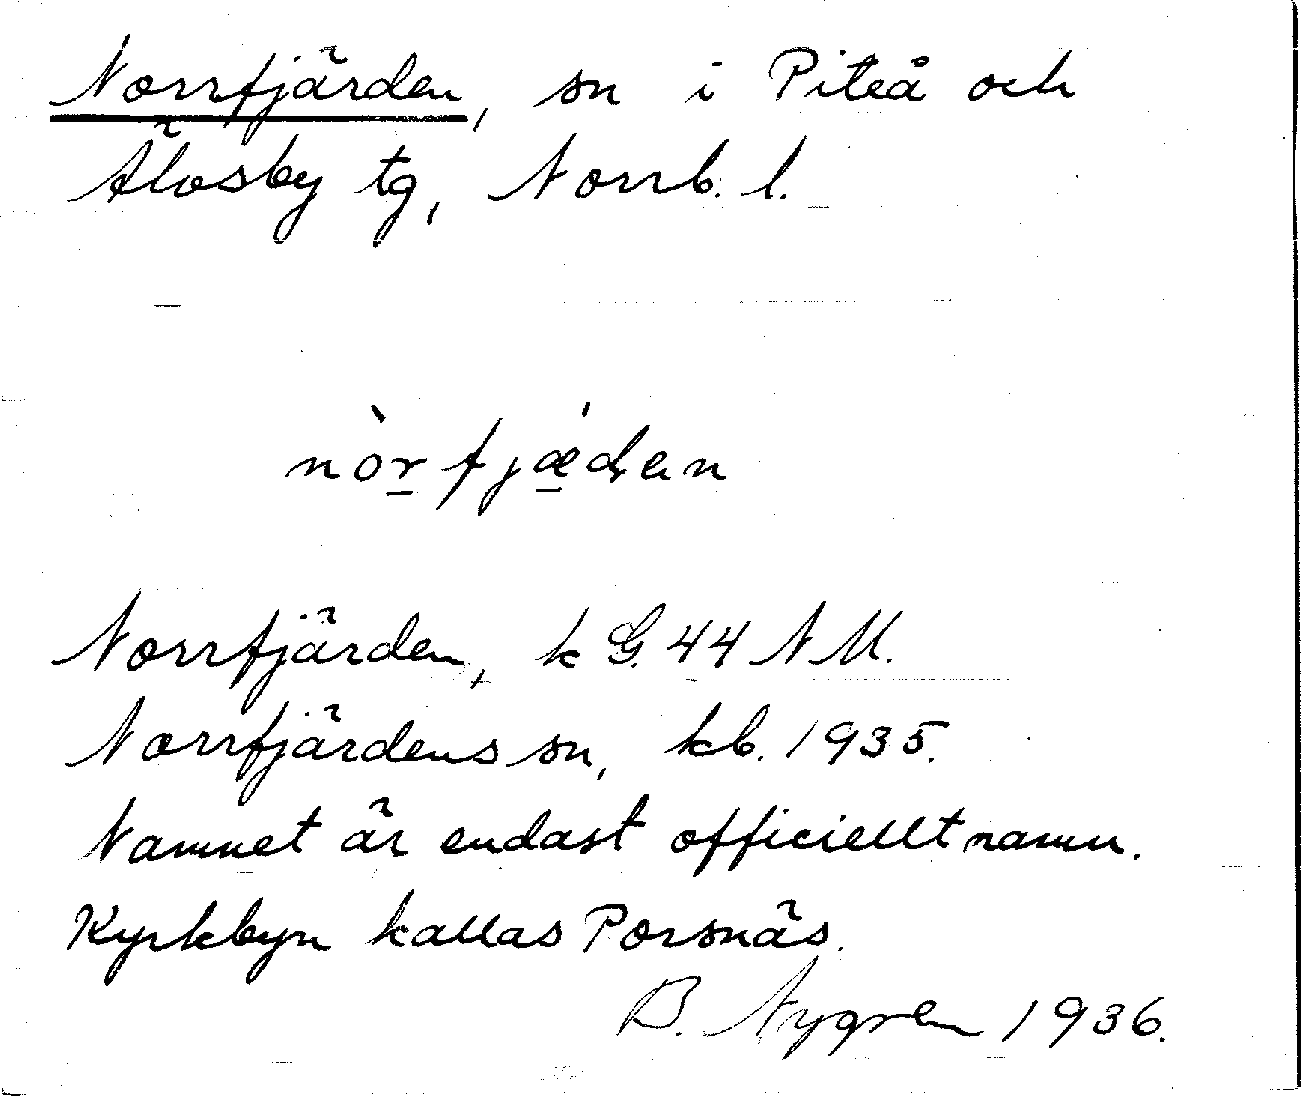 Norrfjärden, sn i Piteå och
Älvsby tg, Norrb. l.
nòr̲fjǽ̲dan
Norrfjärden, k G. 44 N M.
Norrfjärdens sn, kb. 1935.
Namnet är endast officiellt namn.
Kyrkbyn kallas Porsnäs.
B. Nygren 1936.